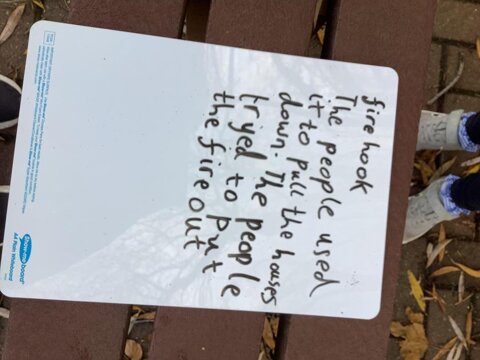 fire hook
The people used
it to pull the houses
down. The people
tryed to put
the fire out
show-me board
A4 Plain Whiteboard